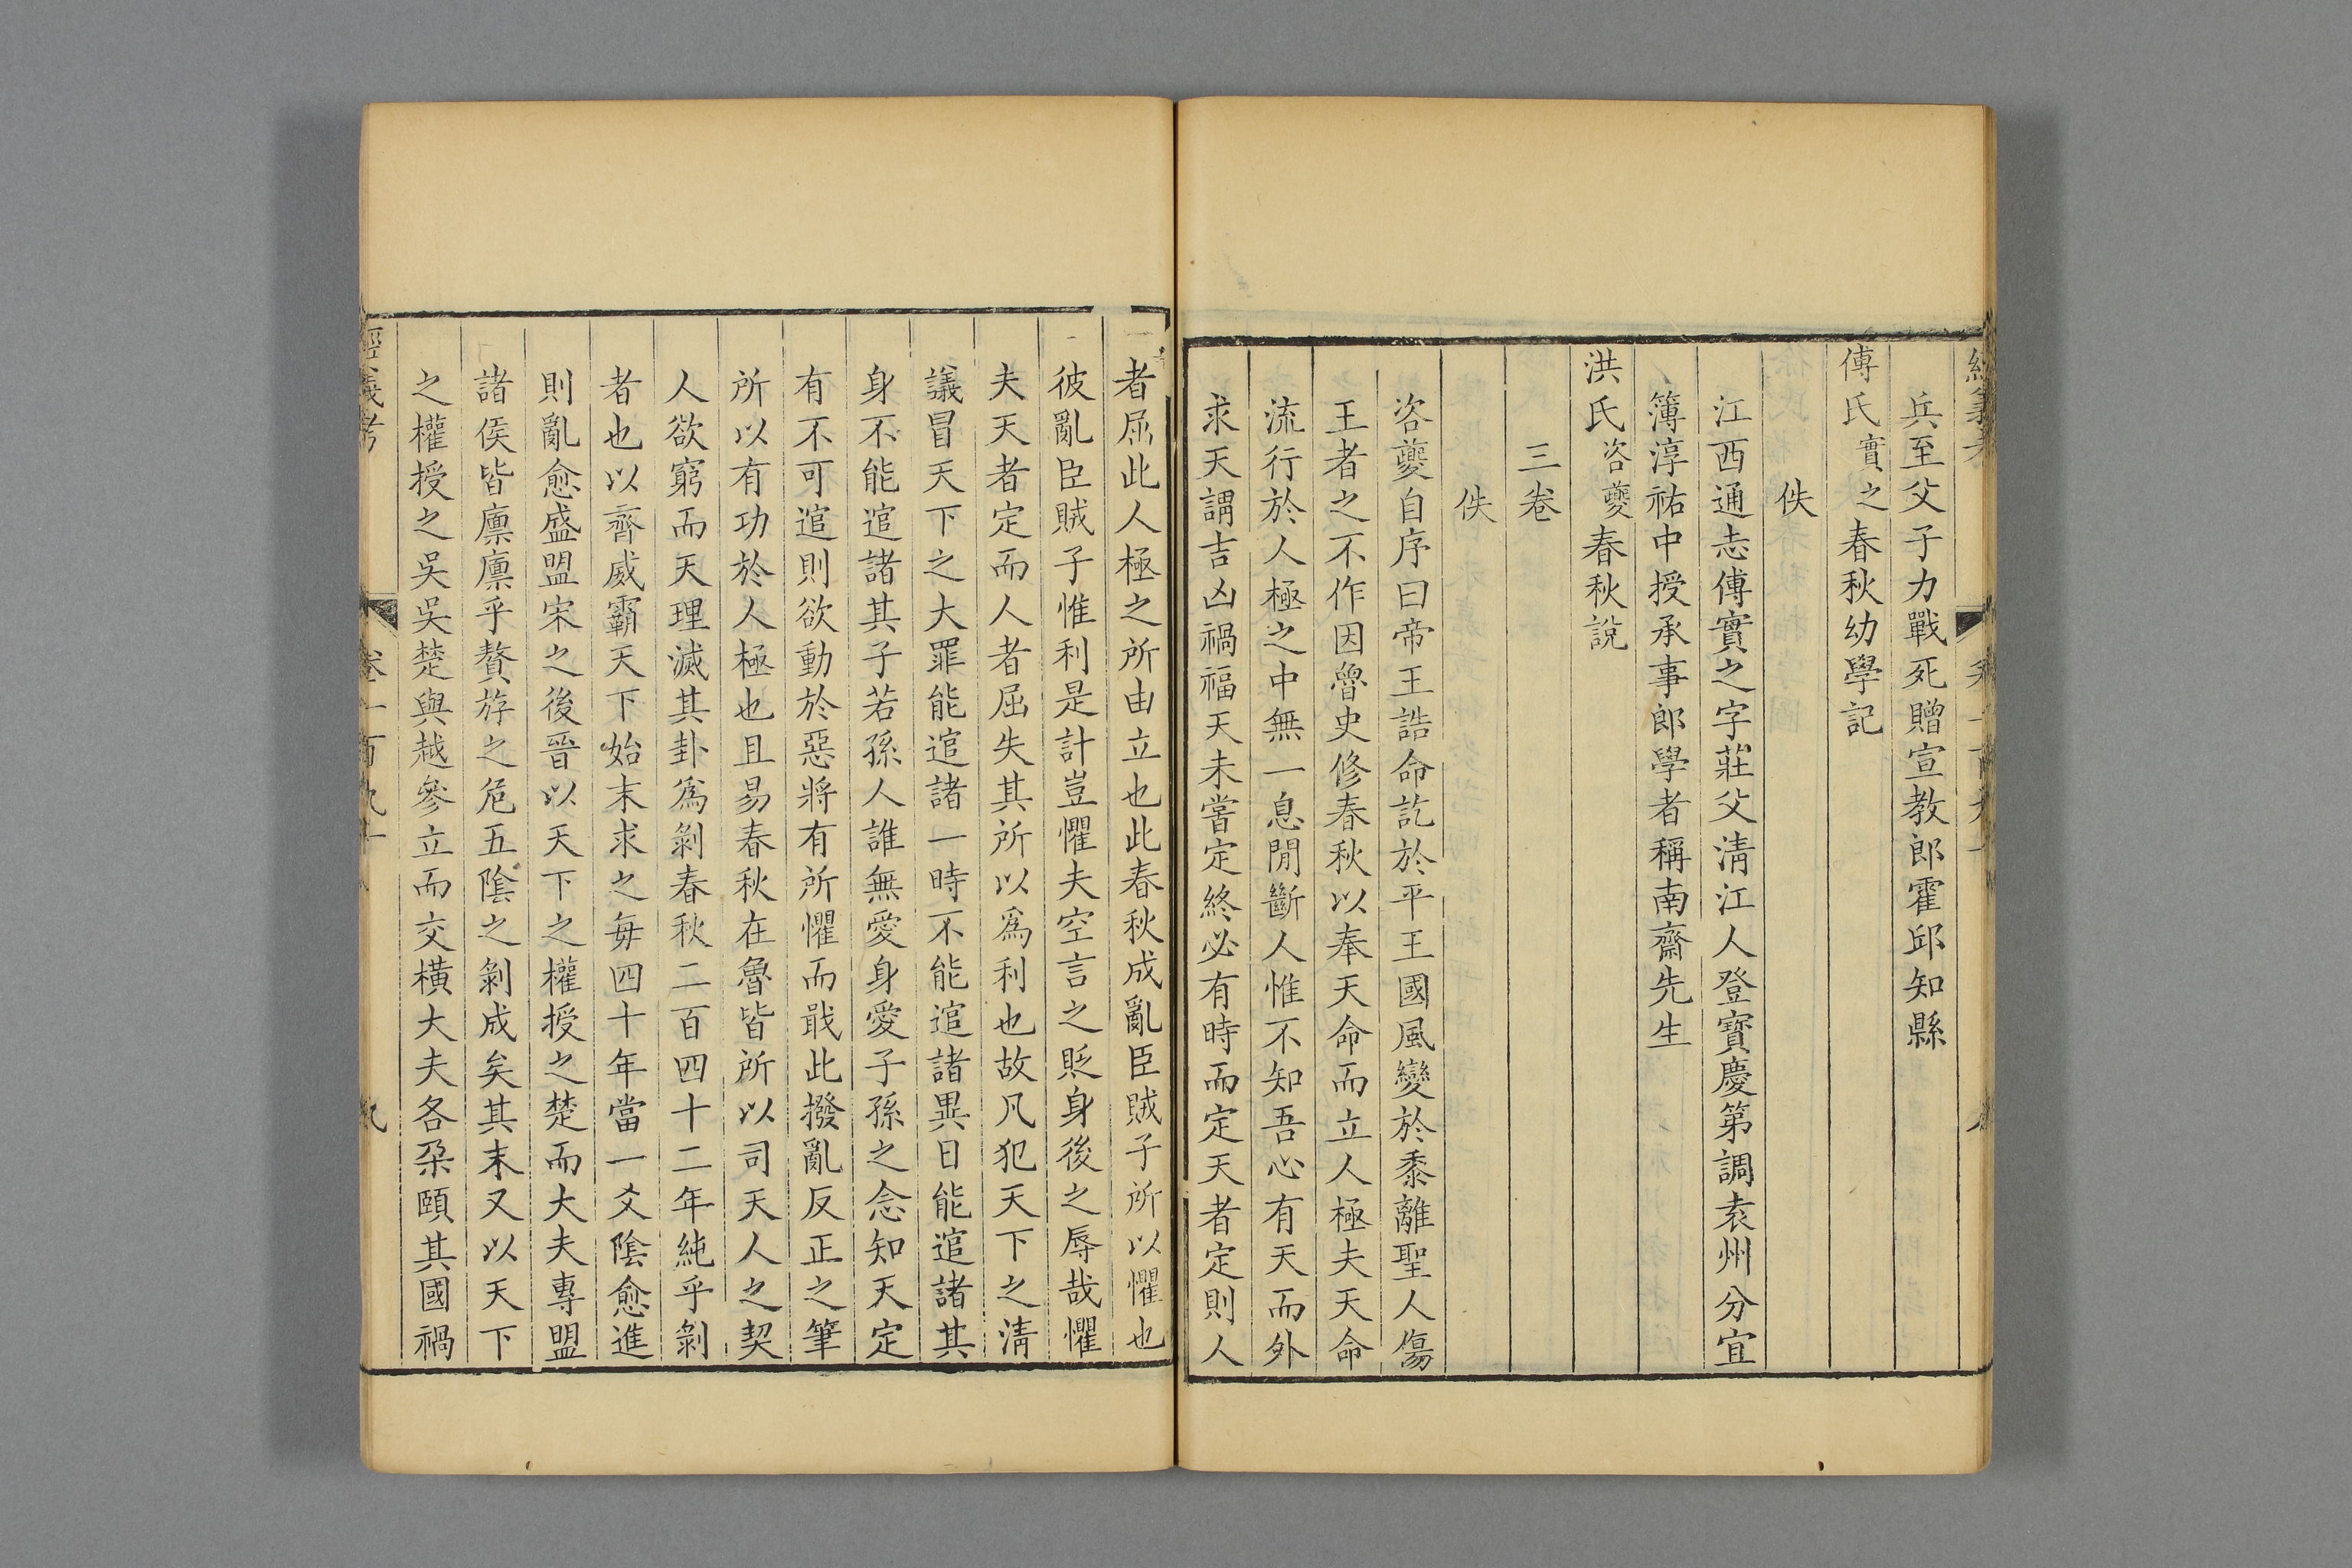 兵至父子力戰死贈宣教郎霍邱知縣
傅氏實之春秋幼學記
佚
江西通志傅實之字莊父清江人登寶慶第調袁州分宜
簿淳祐中授承事郎學者稱南齋先生
洪氏咨夔春秋說
三卷
佚
咨夔自序曰帝王誥命訖於平王國風變於黍離聖人傷
王者之不作因魯史修春秋以奉天命而立人極夫天命
流行於人極之中無一息間斷人惟不知吾心有天而外
求天謂吉凶禍福天未嘗定終必有時而定天者定則人
者屈此人極之所由立也此春秋成亂臣賊子所以懼也
彼亂臣賊子惟利是計豈懼夫空言之貶身後之辱哉懼
夫天者定而人者屈失其所以爲利也故凡犯天下之清
議冒天下之大罪能逭諸一時不能逭諸異日能逭諸其
身不能逭諸其子若孫人誰無愛身愛子孫之念知天定
有不可逭則欲動於惡將有所懼而戢此撥亂反正之筆
所以有功於人極也且易春秋在魯皆所以司天人之契
人欲窮而天理滅其卦爲剝春秋二百四十二年純乎剝
者也以齊威霸天下始末求之每四十年當一爻陰愈進
則亂愈盛盟宋之後晉以天下之權授之楚而大夫專盟
諸侯皆廩廩乎贅斿之危五陰之剝成矣其末又以天下
之權授之吳吳楚與越參立而交橫大夫各朶頤其國禍
經義考 卷一百九十